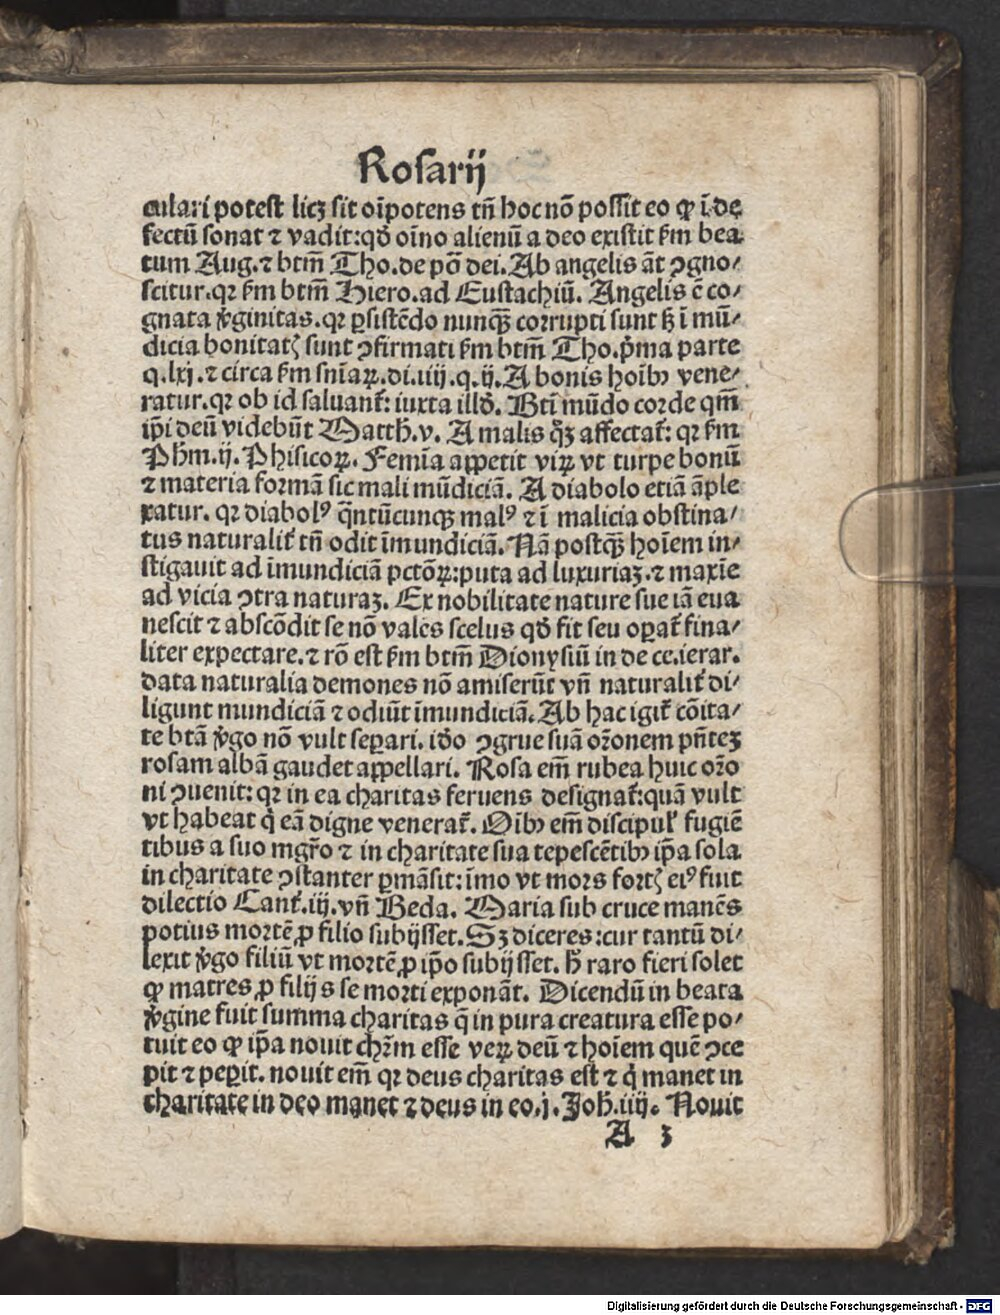 Rosarij
culari potest licꝫ sit oı̄potens tn̄ hoc nō possit eo ꝙ ī de
fectū sonat ⁊ vadit: qd̓ oı̄no alienū a deo existit ẜm bea
tum Aug. ⁊ btm̄ Tho. de pō dei. Ab angelis āt ꝯgno⸗
scitur. qꝛ ẜm btm̄ Hiero. ad Eustachiū. Angelis ē co⸗
gnata v̓ginitas. qꝛ ꝑsistēdo nunqꝫ̄ corrupti sunt sꝫ ī mū⸗
dicia bonitatꝭ sunt ꝯfirmati ẜm btm̄ Tho. p̓ma parte
q. lxj. ⁊ circa ẜm snı̄aꝝ. di. iiij. q. ij. A bonis hoı̄bꝰ vene⸗
ratur. qꝛ ob id saluant᷑: iuxta illd̓. Bti mūdo corde qm̄
ip̄i deū videbūt Matth. v. A malis qꝫ̓ affectat᷑: qꝛ ẜm
Ph̄m. ij. Phisicoꝝ. Femı̄a appetit viꝝ vt turpe bonū
⁊ materia formā sic mali mūdiciā. A diabolo etiā āple
xatur. qꝛ diabolꝰ q̄ntūcunqꝫ malꝰ ⁊ ī malicia obstina⸗
tus naturalit᷑ tn̄ odit īmundiciā. Nā postqꝫ̄ hoı̄em in⸗
stigauit ad īmundiciā pctōꝝ: puta ad luxuriaꝫ. ⁊ maxı̄e
ad vicia ꝯtra naturaꝫ. Ex nobilitate nature sue iā eua
nescit ⁊ abscōdit se nō valēs scelus qd̓ fit seu oꝑat᷑ fina⸗
liter expectare. ⁊ rō est ẜm btm̄ Dionysiū in de ce. ierar.
data naturalia demones nō amiserūt vn̄ naturalit᷑ di⸗
ligunt mundiciā ⁊ odiūt īmundiciā. Ab hac igit᷑ cōita⸗
te btā v̓go nō vult seꝑari. id̓o ꝯgrue suā oꝛ̄onem pn̄teꝫ
rosam albā gaudet appellari. Rosa em̄ rubea huic oꝛ̄o
ni ꝯuenit: qꝛ in ea charitas feruens designat᷑: quā vult
vt habeat q̓ eā digne venerat᷑. Oı̄bꝰ em̄ discipul᷑ fugiē
tibus a suo mgr̄o ⁊ in charitate sua tepescētibꝰ ip̄a sola
in charitate ꝯstanter ꝑmāsit: īmo vt mors fortꝭ eiꝰ fuit
dilectio Cant᷑. iij. vn̄ Beda. Maria sub cruce manēs
potius mortē ꝓ filio subijsset. Sꝫ diceres: cur tantū di⸗
lexit v̓go filiū vt mortē ꝓ ip̄o subijsset. h̄ raro fieri solet
ꝙ matres ꝓ filijs se morti exponāt. Dicendū in beata
v̓gine fuit summa charitas q̄ in pura creatura esse po⸗
tuit eo ꝙ ip̄a nouit chꝛ̄m esse veꝝ deū ⁊ hoı̄em quē ꝯce
pit ⁊ peꝑit. nouit em̄ qꝛ deus charitas est ⁊ q̓ manet in
charitate in deo manet ⁊ deus in eo. j. Joh̄. iiij. Nouit
A 3
Digitalisierung gefördert durch die Deutsche Forschungsgemeinschaft - DFG